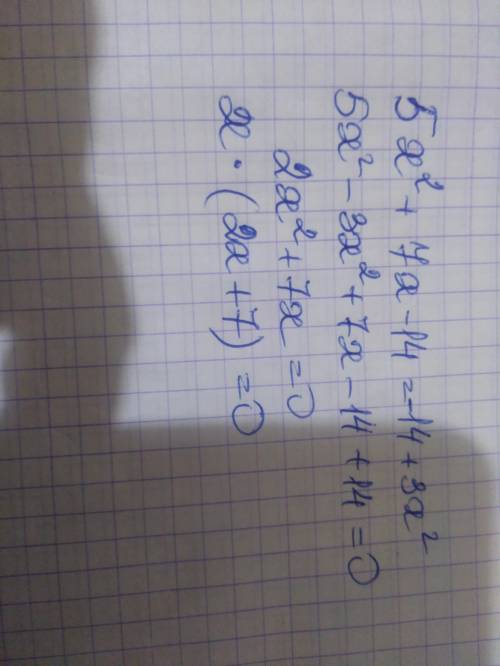 5x² + 7x - 14 = -14 + 3x²
5x² - 3x² + 7x - 14 + 14 = 0
2x² + 7x = 0
x · (2x + 7) = 0